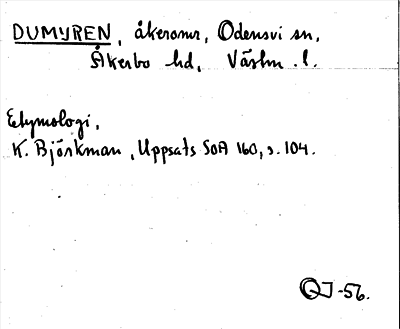 DUMYREN, åkeromr, Odensvi sn,
Åkerbo hd, Västm. l.
Etymologi,
K. Björkman, Uppsats SOA 160, s. 104.
QJ -56.